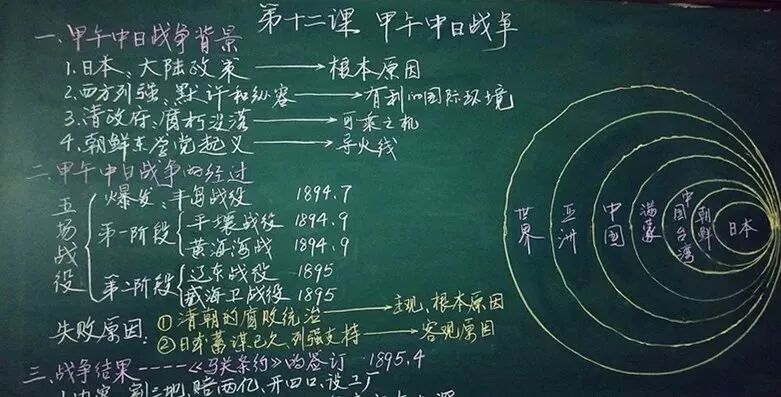 第十二课 甲午中日战争
一、甲午中日战争背景
1.日本、大陆政策 → 根本原因
2.西方列强、默许和纵容 → 有利的国际环境
3.清政府、腐朽没落 → 可乘之机
4.朝鲜东学党起义 → 导火线
二、甲午中日战争的经过
五场战役
爆发:丰岛战役 1894.7
第一阶段
平壤战役 1894.9
黄海海战 1894.9
第二阶段
辽东战役 1895
威海卫战役 1895
失败原因:
①清朝的腐败统治 → 主观、根本原因
②日本蓄谋已久、列强支持 → 客观原因
三、战争结果----《马关条约》的签订 1895.4
割三地、赔两亿、开四口、设工厂
世界
亚洲
中国
满蒙
中国台湾
朝鲜
日本